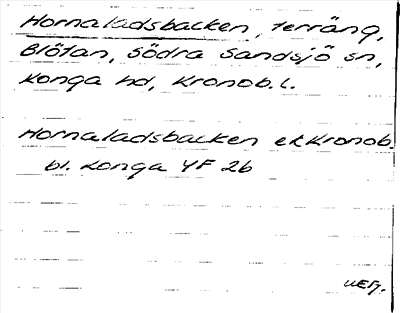 Hornaladsbacken, terräng,
Blötan, Södra Sandsjö sn,
Konga hd, Kronob. l.
Hornaladsbacken ek Kronob.
bl. Konga YF 2b